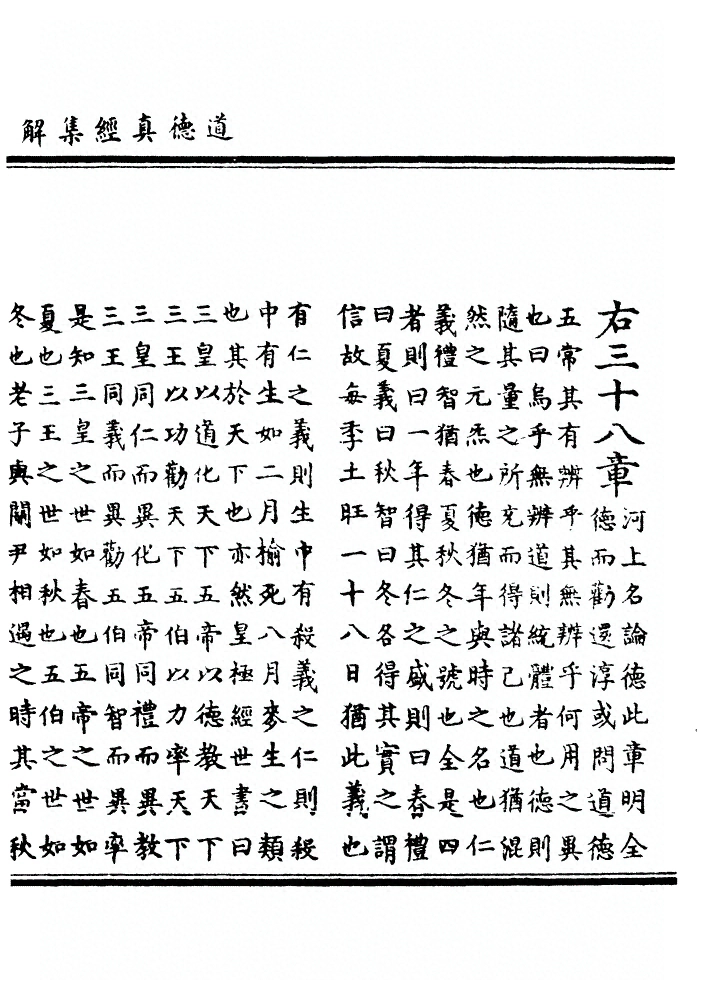 道德真經集解
右三十八章
河上名論德此章明全
德而勸還淳或問道德
五常其有辨乎其無辨乎何用之異
也曰烏乎無辨道則統體者也德則
隨其量之所充而得諸己也道猶混
然之元炁也德猶年與時之名也仁
義禮智猶春夏秋冬之號也全是四
者則曰一年得其仁之盛則曰春禮
曰夏義曰秋智曰冬各得其實之謂
信故每季土旺一十八日猶此義也
有仁之義則生中有殺義之仁則殺
中有生如二月榆死八月麥生之類
也其於天下也亦然皇極經世書曰
三皇以道化天下五帝以德教天下
三王以功勸天下五伯以力率天下
三皇同仁而異化五帝同禮而異教
三王同義而異勸五伯同智而異率
是知三皇之世如春也五帝之世如
夏也三王之世如秋也五伯之世如
冬也老子與關尹相遇之時其當秋